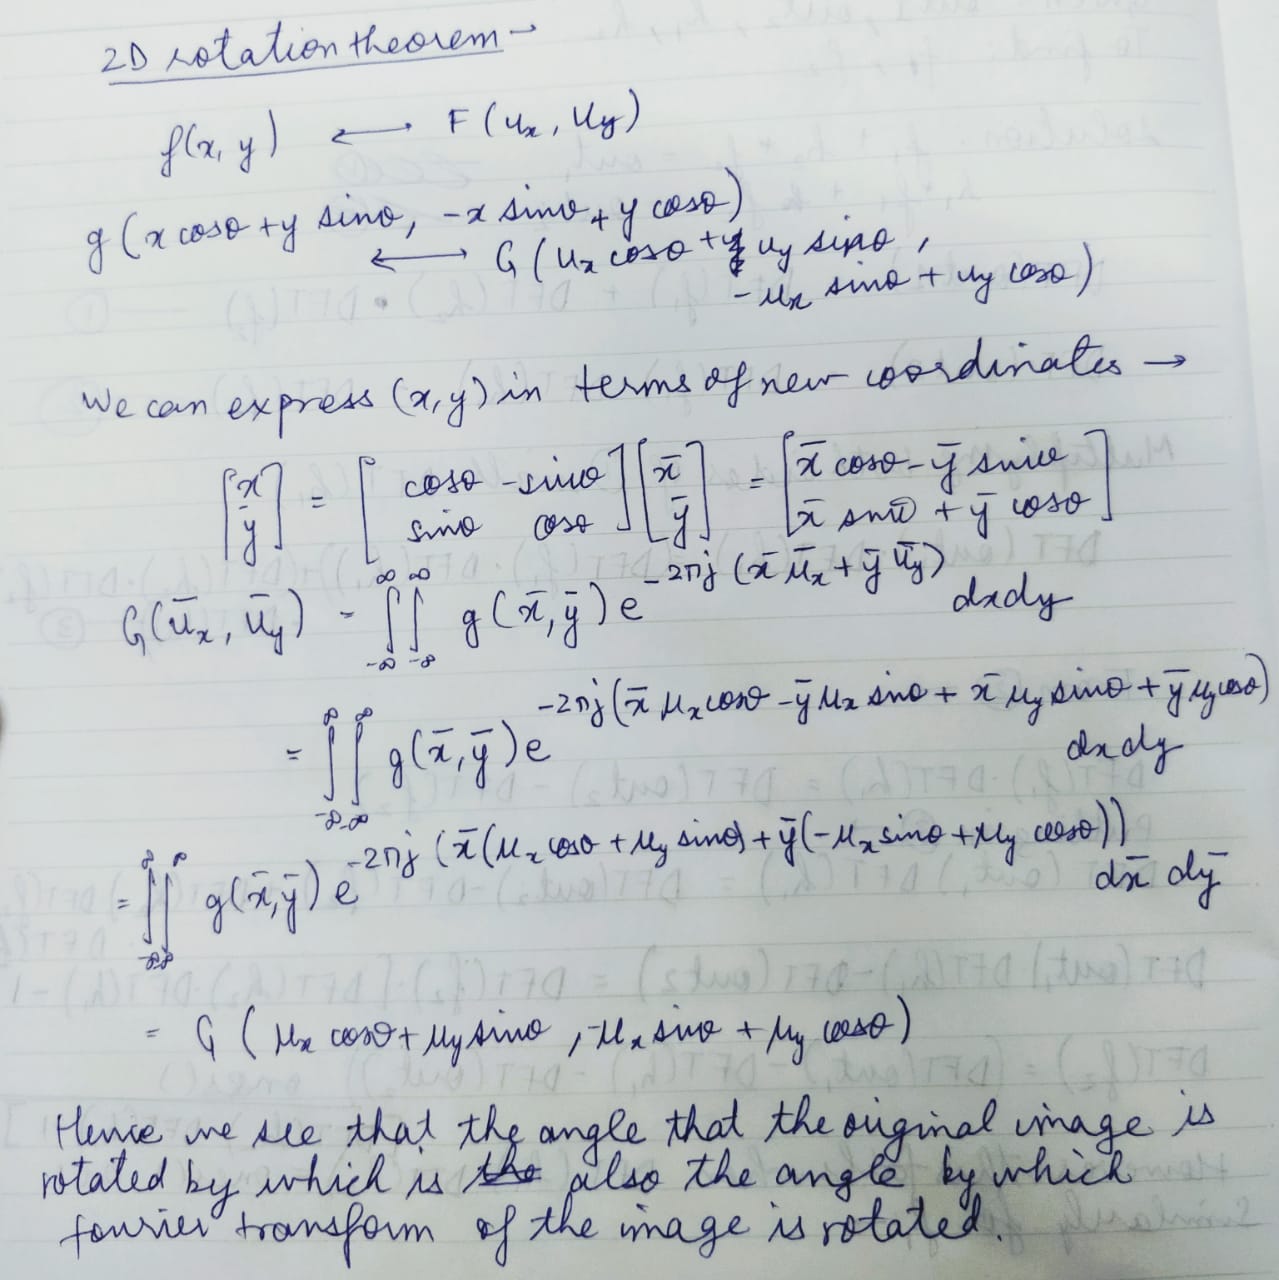 2D rotation theorem →
f(x, y) ↔ F(u_x, u_y)
g(x cosθ + y sinθ, -x sinθ + y cosθ)
↔ G(u_x cosθ + u_y sinθ,
-u_x sinθ + u_y cosθ)
We can express (x, y) in terms of new coordinates →
[x y] = [cosθ -sinθ sinθ cosθ] [x̄ ȳ] = [x̄ cosθ - ȳ sinθ x̄ sinθ + ȳ cosθ]
G(ū_x, ū_y) - ∫_{-∞}^{∞} ∫_{-∞}^{∞} g(x̄, ȳ) e^{-2πj (x̄ μ̄_x + ȳ ū_y)} dxdy
= ∫_{-∞}^{∞} ∫_{-∞}^{∞} g(x̄, ȳ) e^{-2πj (x̄ μ_x cosθ - ȳ μ_x sinθ + x̄ μ_y sinθ + ȳ μ_y cosθ)}
dxdy
= ∫_{-∞}^{∞} ∫_{-∞}^{∞} g(x̄, ȳ) e^{-2πj (x̄ (μ_x cosθ + μ_y sinθ) + ȳ (-μ_x sinθ + μ_y cosθ))}
dx̄ dȳ
= G(μ_x cosθ + μ_y sinθ, -μ_x sinθ + μ_y cosθ)
Hence we see that the angle that the original image is
rotated by which is also the angle by which
fourier transform of the image is rotated.